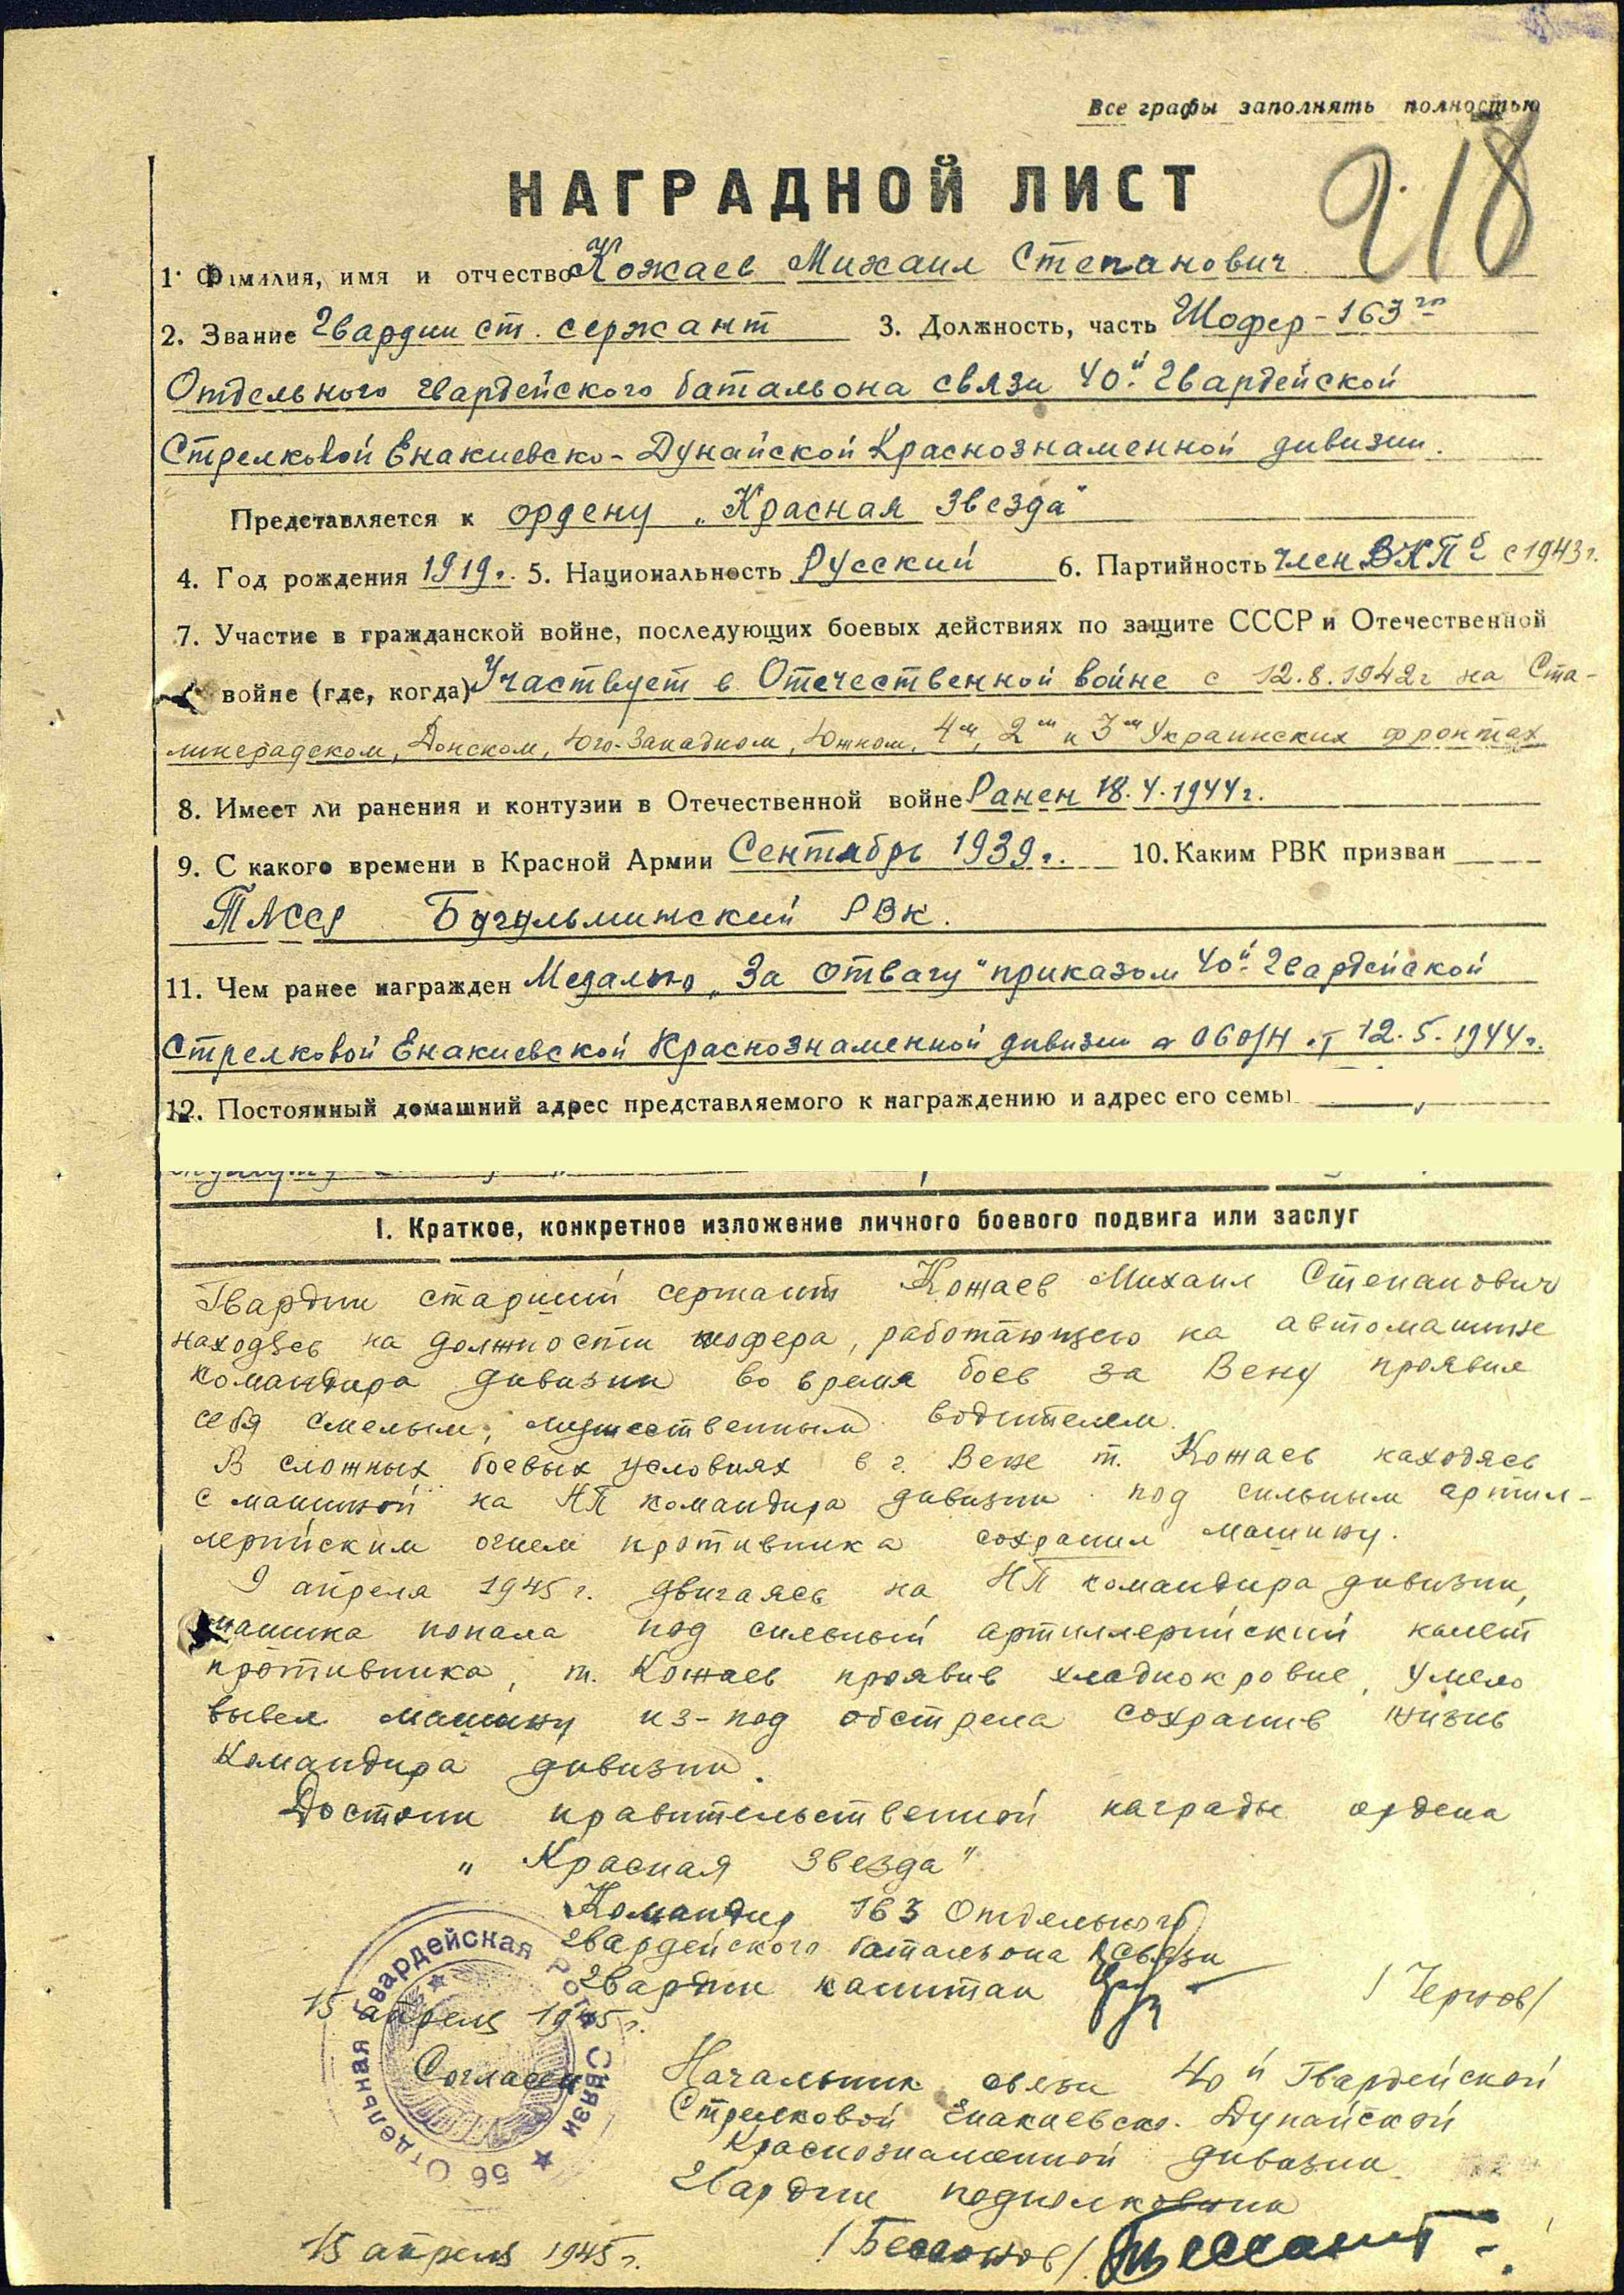 Все графы заполнять полностью
218
НАГРАДНОЙ ЛИСТ
1. Фамилия, имя и отчество Кожаев Михаил Степанович
2. Звание Гвардии ст. сержант 3. Должность, часть Шофер - 163го
Отдельного гвардейского батальона связи 40й Гвардейской
Стрелковой Енакиевско-Дунайской Краснознаменной дивизии.
Представляется к ордену „Красная Звезда"
4. Год рождения 1919г. 5. Национальность Русский 6. Партийность член ВКПб с 1943г.
7. Участие в гражданской войне, последующих боевых действиях по защите СССР и Отечественной
войне (где, когда) Участвует в Отечественной войне с 12.8.1942г на Ста-
линградском, Донском, Юго-Западном, Южном, 4м, 2м и 3м Украинских фронтах
8. Имеет ли ранения и контузии в Отечественной войне Ранен 18.4.1944г.
9. С какого времени в Красной Армии Сентябрь 1939г. 10. Каким РВК призван
ТАССР Бугульминский РВК.
11. Чем ранее награжден Медалью „За отвагу" приказом 40й Гвардейской
Стрелковой Енакиевской Краснознаменной дивизии № 060/Н от 12.5.1944г.
12. Постоянный домашний адрес представляемого к награждению и адрес его семьи
I. Краткое, конкретное изложение личного боевого подвига или заслуг
Гвардии старший сержант Кожаев Михаил Степанович
находясь на должности шофера, работающего на автомашине
командира дивизии во время боев за Вену проявил
себя смелым, мужественным водителем.
В сложных боевых условиях в г. Вене т. Кожаев находясь
с машиной на НП командира дивизии под сильным артил-
лерийским огнем противника сохранил машину.
9 апреля 1945 г. двигаясь на НП командира дивизии,
машина попала под сильный артиллерийский налет
противника, т. Кожаев проявив хладнокровие, умело
вывел машину из-под обстрела сохранив жизнь
командира дивизии.
Достоин правительственной награды ордена
„Красная Звезда"
Командир 163 Отдельного
гвардейского батальона связи
гвардии капитан /Чернов/
15 апреля 1945 г.
56 Отдельная Гвардейская Рота Связи
Согласен Начальник связи 40й Гвардейской
Стрелковой Енакиевско-Дунайской
Краснознаменной дивизии
Гвардии подполковник
15 апреля 1945г. /Бессонов/